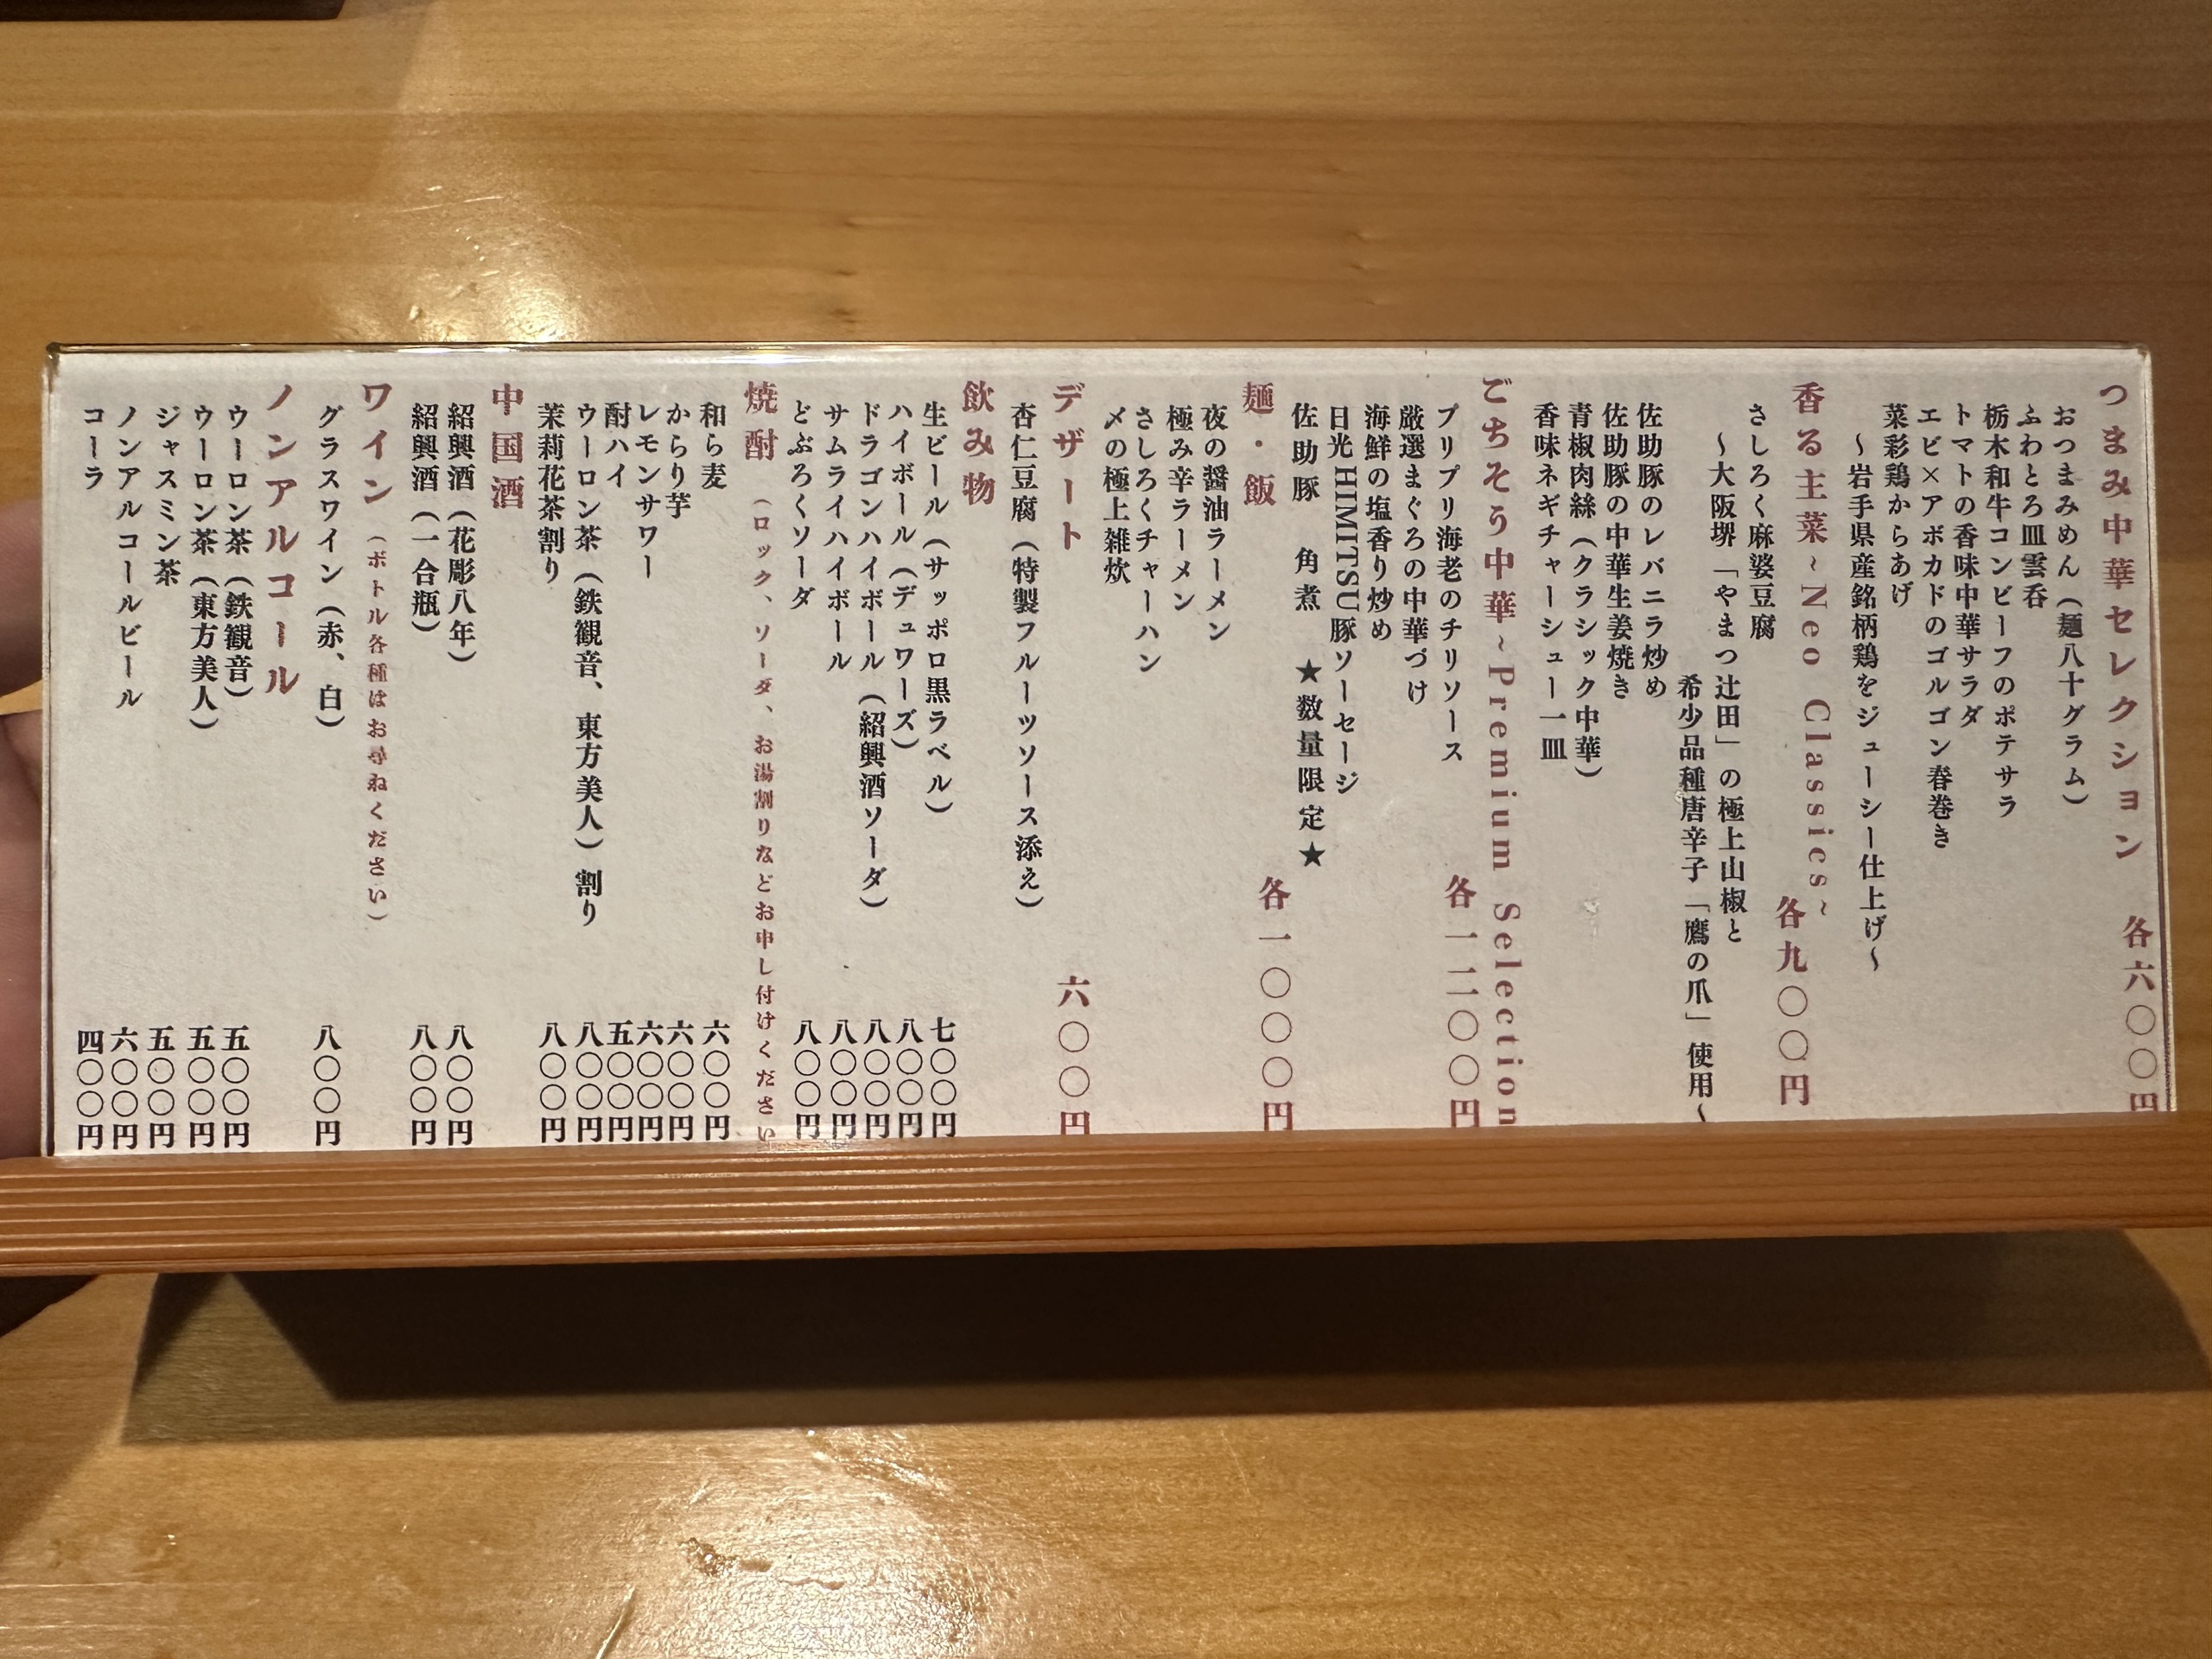 つまみ中華セレクション 各六〇〇円
おつまみめん（麺八十グラム）
ふわとろ皿雲呑
栃木和牛コンビーフのポテサラ
トマトの香味中華サラダ
エビ×アボカドのゴルゴン春巻き
菜彩鶏からあげ
～岩手県産銘柄鶏をジューシー仕上げ～
香る主菜~Neo Classics~ 各九〇〇円
さしろく麻婆豆腐
～大阪堺「やまつ辻田」の極上山椒と
希少品種唐辛子「鷹の爪」使用～
佐助豚のレバニラ炒め
佐助豚の中華生姜焼き
青椒肉絲（クラシック中華）
香味ネギチャーシュー一皿
ごちそう中華~Premium Selection
各一二〇〇円
プリプリ海老のチリソース
厳選まぐろの中華づけ
海鮮の塩香り炒め
日光HIMITSU豚ソーセージ
佐助豚 角煮 ★数量限定★
麺・飯 各一〇〇〇円
夜の醤油ラーメン
極み辛ラーメン
さしろくチャーハン
〆の極上雑炊
デザート 六〇〇円
杏仁豆腐（特製フルーツソース添え）
飲み物
生ビール（サッポロ黒ラベル） 七〇〇円
ハイボール（デュワーズ） 八〇〇円
ドラゴンハイボール（紹興酒ソーダ） 八〇〇円
サムライハイボール 八〇〇円
どぶろくソーダ 八〇〇円
焼酎（ロック、ソーダ、お湯割りなどお申し付けください
和ら麦 六〇〇円
からり芋 六〇〇円
レモンサワー 六〇〇円
酎ハイ 五〇〇円
ウーロン茶（鉄観音、東方美人）割り 八〇〇円
茉莉花茶割り 八〇〇円
中国酒
紹興酒（花彫八年） 八〇〇円
紹興酒（一合瓶） 八〇〇円
ワイン（ボトル各種はお尋ねください）
グラスワイン（赤、白） 八〇〇円
ノンアルコール
ウーロン茶（鉄観音） 五〇〇円
ウーロン茶（東方美人） 五〇〇円
ジャスミン茶 五〇〇円
ノンアルコールビール 六〇〇円
コーラ 四〇〇円